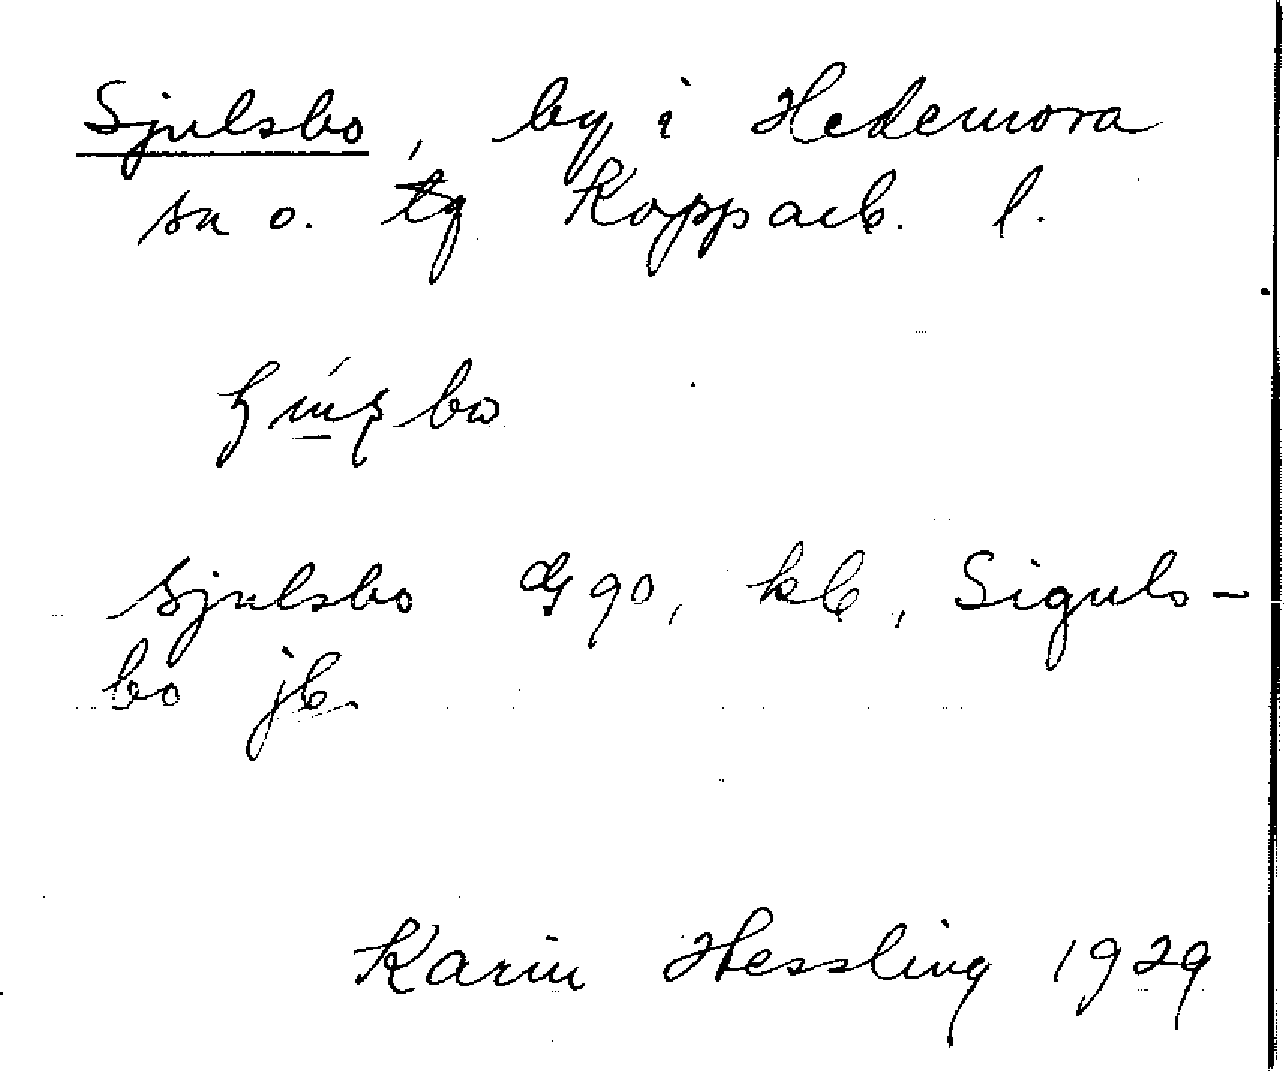 Sjulsbo, by i Hedemora
sn o. tg Kopparb. l.
bo
Sjulsbo G 90, kb, Siguls-
bo jb.
Karin Hessling 1929